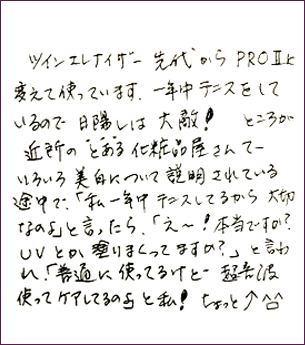 ツインエレナイザー 先代から PROⅡと
変えて使っています。一年中テニスをして
いるので 日陽しは 大敵！ ところが
近所の とある 化粧品屋さんで
いろいろ 美白について 説明されている
途中で、「私一年中 テニスしてるから 大切
なのよ」と言ったら、「え〜！本当ですか？
UVとか 塗りまくってますか？」と言わ
れ、「普通に 使ってるけど 超音波
使ってケアしてるのよ」と私！ ちょっと↑^^